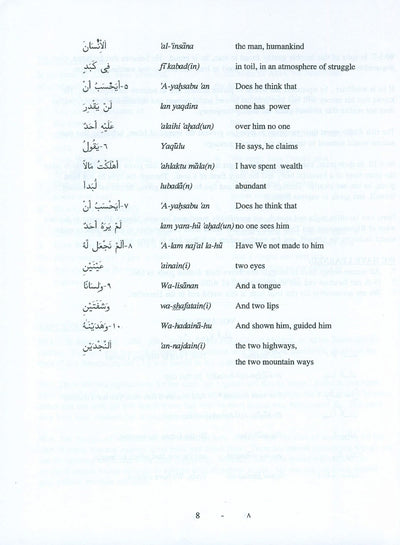 الْإِنْسَانَ 'al-'insāna the man, humankind
فِي كَبَدٍ fī kabad(in) in toil, in an atmosphere of struggle
٥-أَيَحْسَبُ أَنْ 'A-yaḥsabu 'an Does he think that
لَنْ يَقْدِرَ lan yaqdira none has power
عَلَيْهِ أَحَدٌ 'alaihi 'aḥad(un) over him no one
٦-يَقُولُ Yaqūlu He says, he claims
أَهْلَكْتُ مَالًا 'ahlaktu māla(n) I have spent wealth
لُبَدًا lubadā(n) abundant
٧-أَيَحْسَبُ أَنْ 'A-yaḥsabu 'an Does he think that
لَمْ يَرَهُ أَحَدٌ lam yara-hū 'aḥad(un) no one sees him
٨-أَلَمْ نَجْعَلْ لَهُ 'A-lam naj'al la-hū Have We not made to him
عَيْنَيْنِ 'ainain(i) two eyes
٩-وَلِسَانًا Wa-lisānan And a tongue
وَشَفَتَيْنِ wa-shafatain(i) And two lips
١٠-وَهَدَيْنَاهُ Wa-hadainā-hu And shown him, guided him
النَّجْدَيْنِ 'an-najdain(i) the two highways,
the two mountain ways
8 - ٨